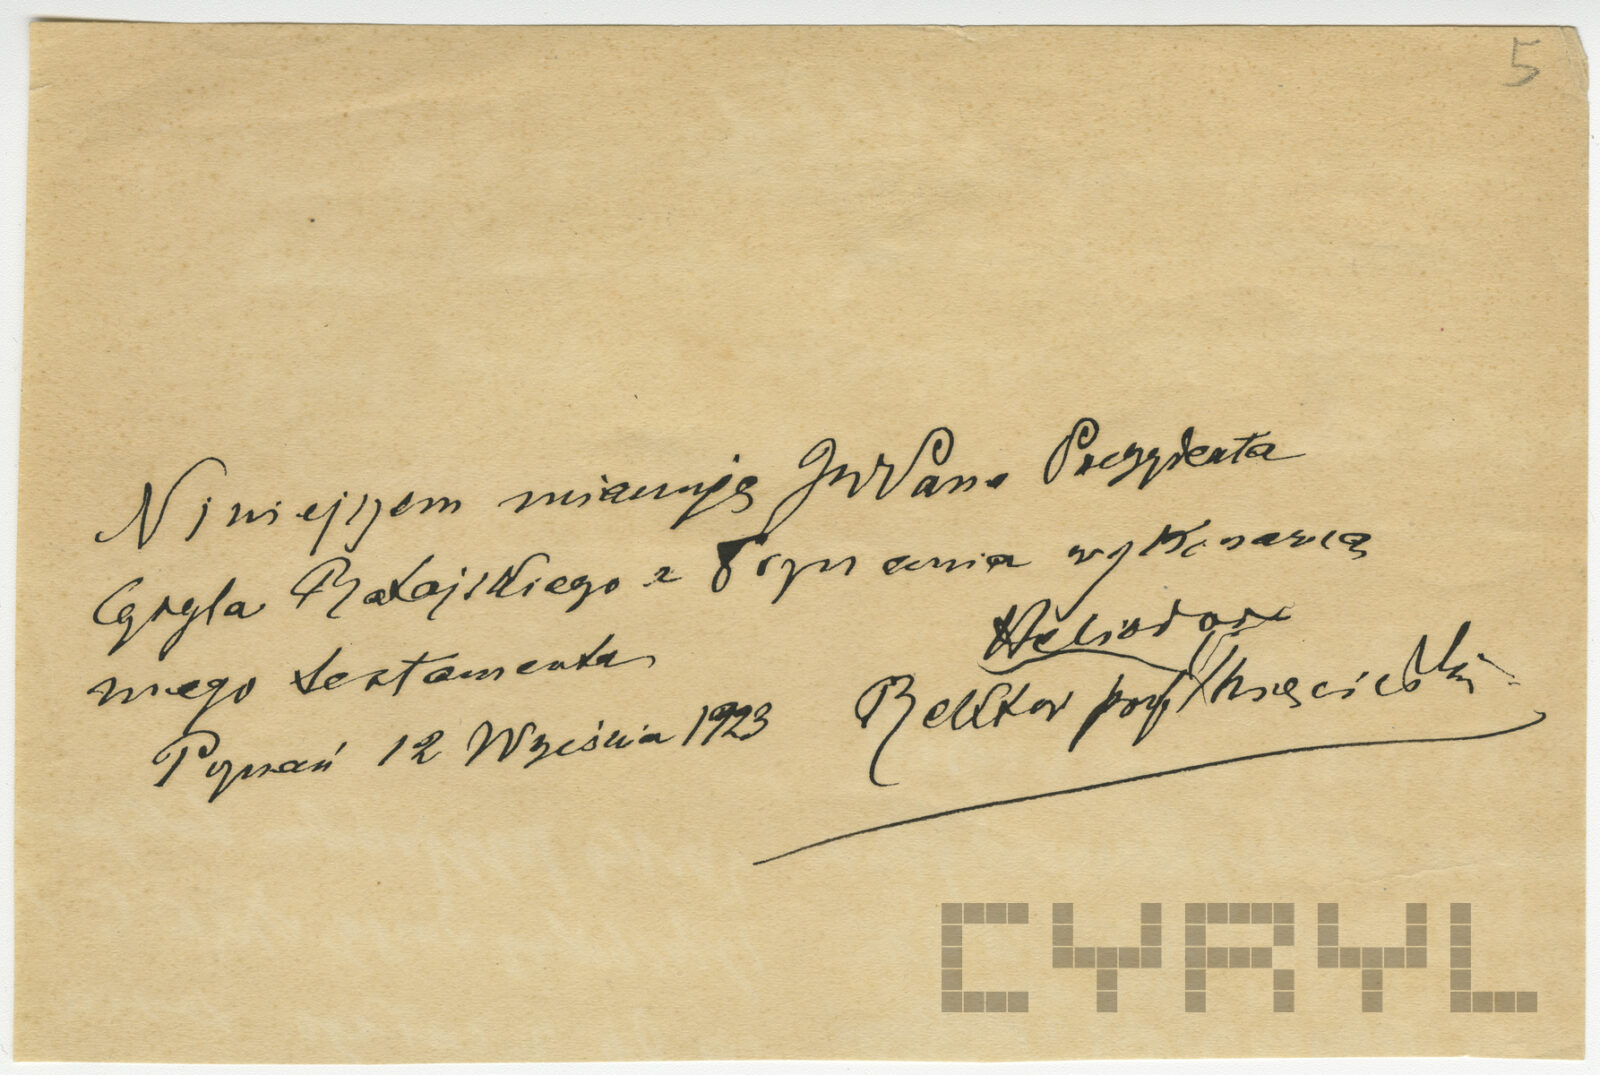 5
Niniejszem mianuję JWPana Prezydenta
Cyryla Ratajskiego z Poznania wykonawcą
mego testamentu
Poznań 12 Września 1923
Heliodor
Rektor prof Święcicki
CYRYL